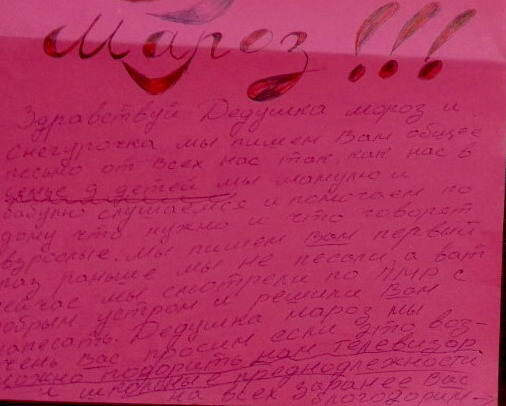 Мароз!!!
Здравствуй Дедушка мороз и
снегурочка мы пишем Вам общее
письмо от всех нас так как нас в
семье 9 детей мы мамулю и
бабулю слушаемся и помогаем по
дому что нужно и что говорят
взрослые. Мы пишем Вам первый
раз раньше мы не писали а вот
сейчас мы смотрели по ПМР с
добрым утром и решили Вам
написать. Дедушка мороз мы
очень Вас просим если это воз-
можно подорить нам телевизор
и школьные преднодлежности
на всех заранее Вас
благодорим